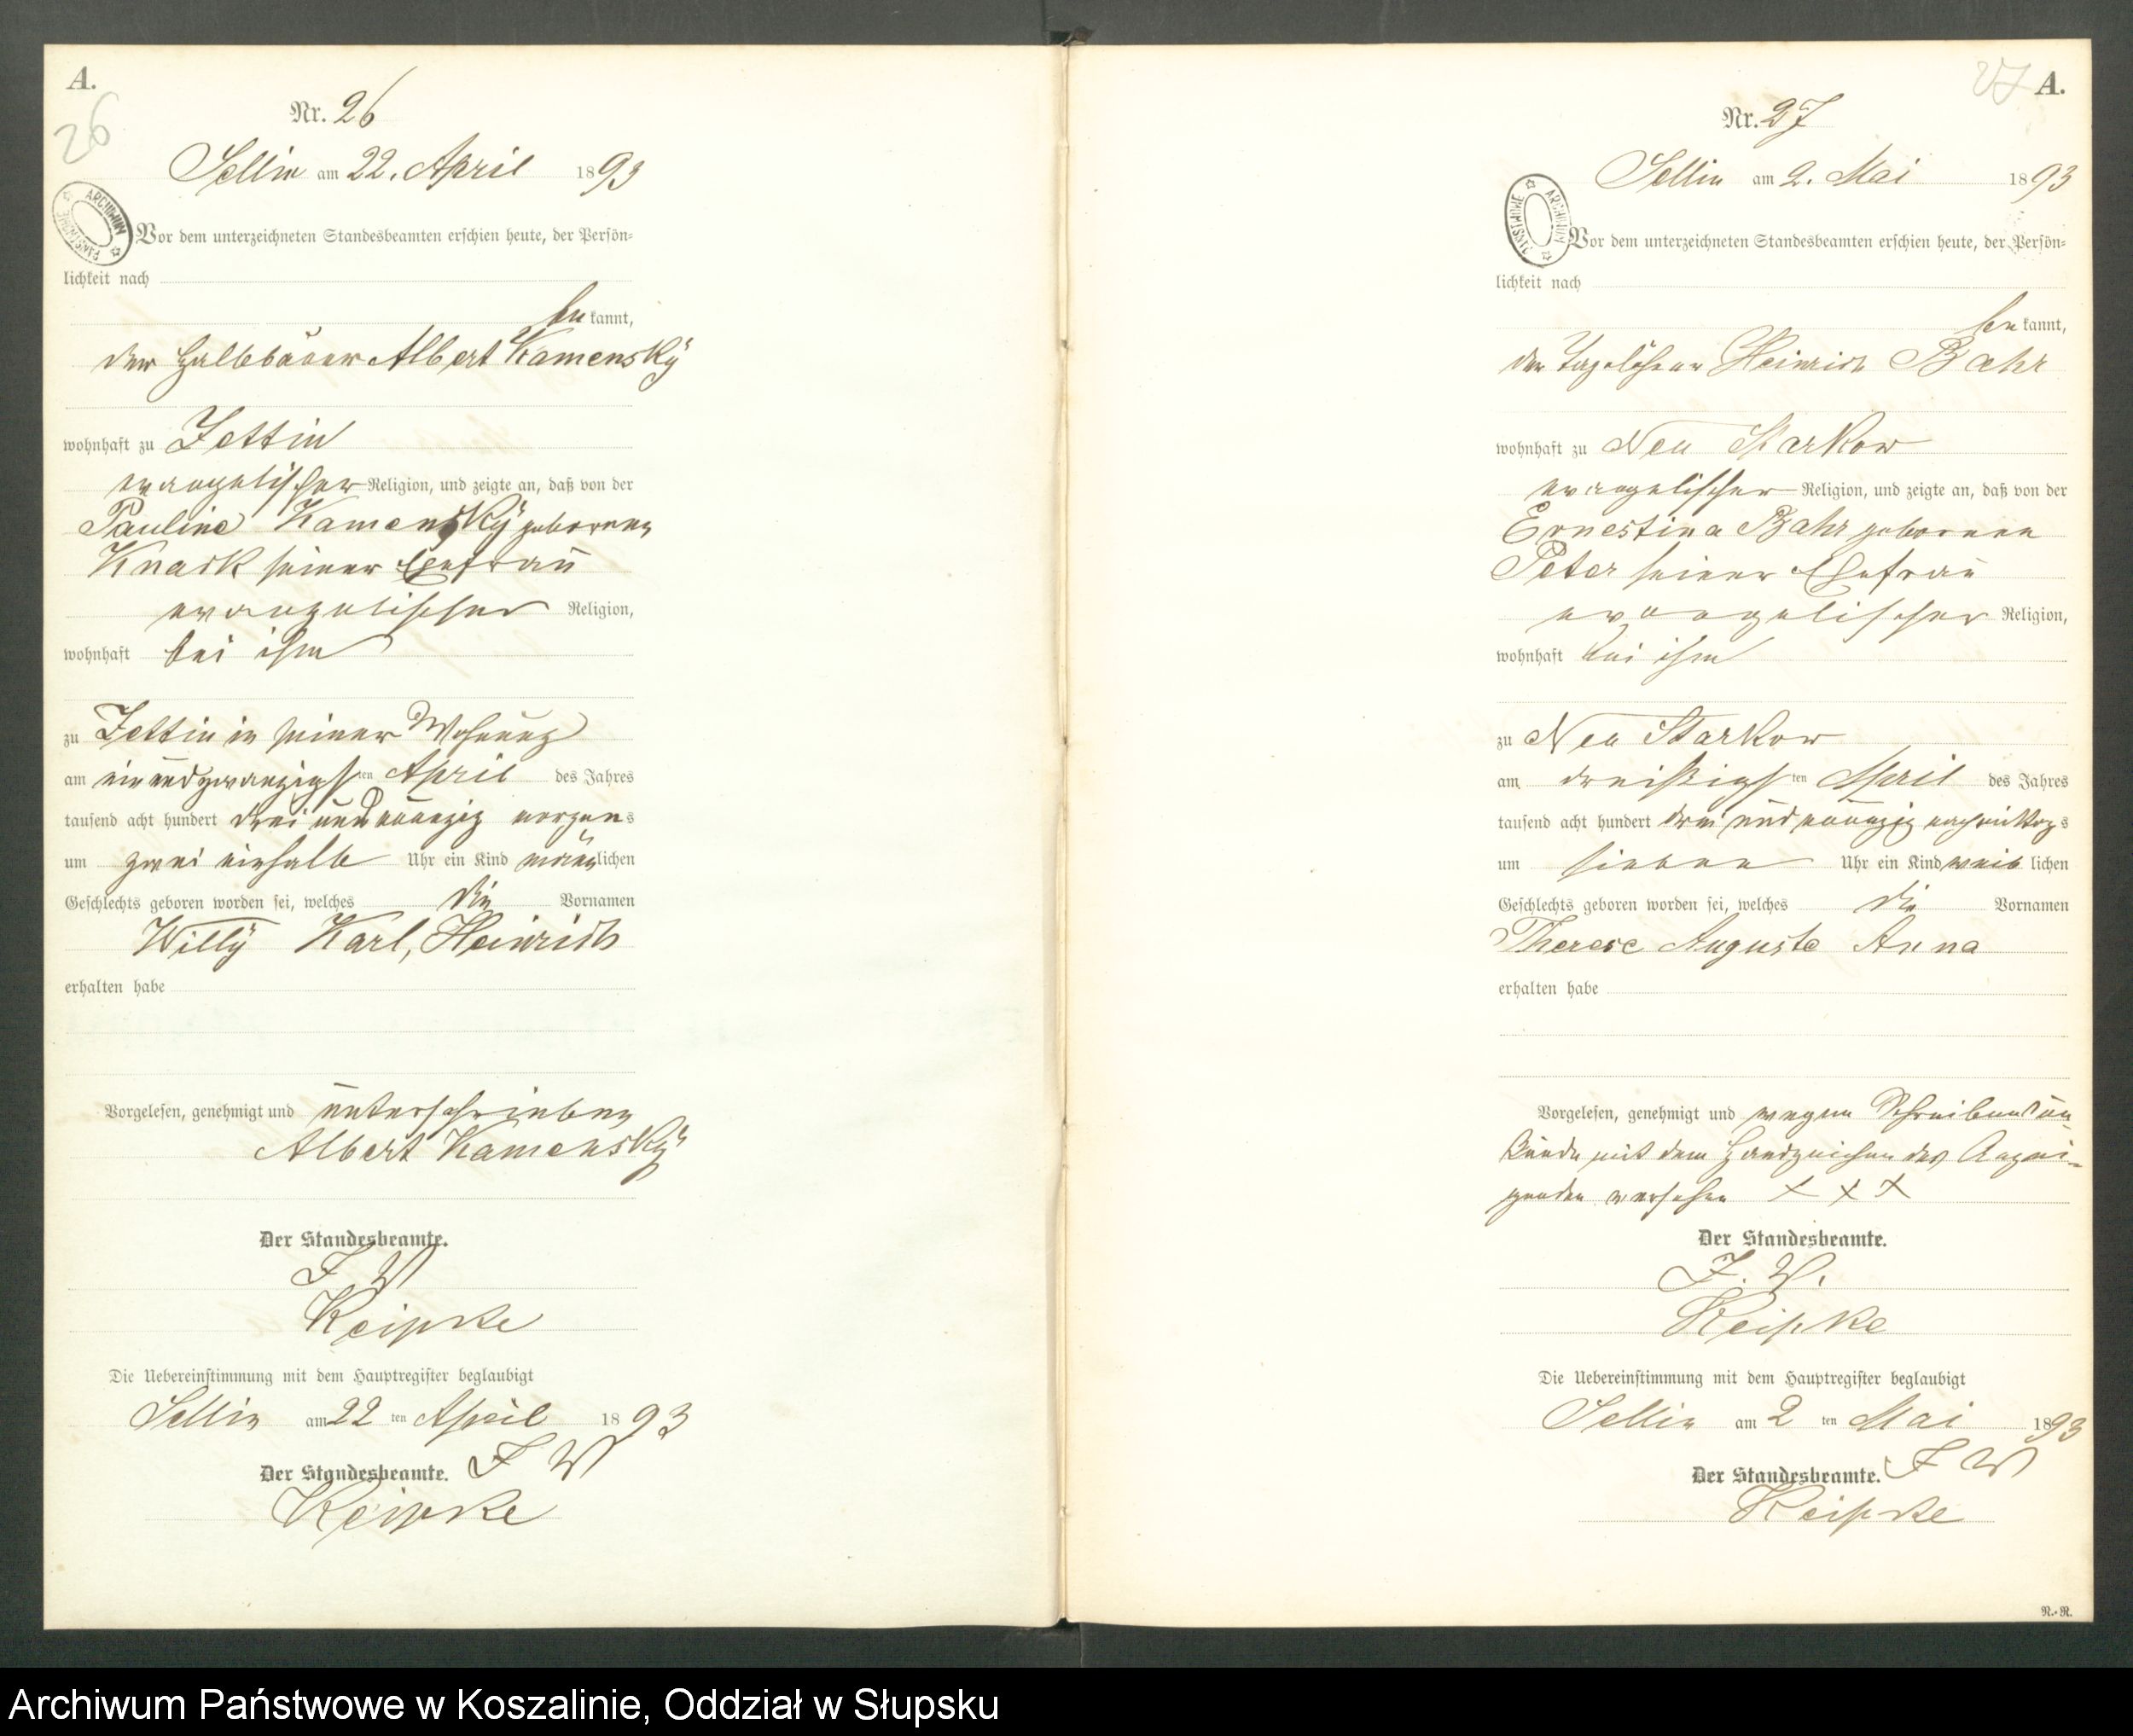 A.
26
Nr. 26
Sellin am 22. April 1893
ARCHIWUM PAŃSTWOWE
Vor dem unterzeichneten Standesbeamten erschien heute, der Persön-
lichkeit nach
be kannt,
der Halbbauer Albert Kamensky
wohnhaft zu Zettin
evangelischer Religion, und zeigte an, daß von der
Pauline Kamensky geborenen
Knack seiner Ehefrau
evangelischer Religion,
wohnhaft bei ihm
zu Zettin in seiner Wohnung
am einundzwanzigsten April des Jahres
tausend acht hundert drei und neunzig morgens
um zwei einhalb Uhr ein Kind männlichen
Geschlechts geboren worden sei, welches die Vornamen
Willy Karl, Heinrich
erhalten habe
Vorgelesen, genehmigt und unterschrieben
Albert Kamensky
Der Standesbeamte.
J. W
Keipke
Die Uebereinstimmung mit dem Hauptregister beglaubigt
Sellin am 22 ten April 1893
Der Standesbeamte. J W
Keipke
27 A.
Nr. 27
Sellin am 2. Mai 1893
ARCHIWUM PAŃSTWOWE
Vor dem unterzeichneten Standesbeamten erschien heute, der Persön-
lichkeit nach
be kannt,
der Tagelöhner Heinrich Bahr
wohnhaft zu Neu Starkow
evangelischer Religion, und zeigte an, daß von der
Ernestina Bahr geborenen
Peter seiner Ehefrau
evangelischer Religion,
wohnhaft bei ihm
zu Neu Starkow
am dreißigsten April des Jahres
tausend acht hundert drei und neunzig nachmittags
um sieben Uhr ein Kind weib lichen
Geschlechts geboren worden sei, welches die Vornamen
Therese Auguste Anna
erhalten habe
Vorgelesen, genehmigt und wegen Schreibensun-
kunde mit dem Handzeichen des Anzei-
genden versehen + + +
Der Standesbeamte.
J. W.
Keipke
Die Uebereinstimmung mit dem Hauptregister beglaubigt
Sellin am 2 ten Mai 1893
Der Standesbeamte. J W
Keipke
N.-R.
Archiwum Państwowe w Koszalinie, Oddział w Słupsku